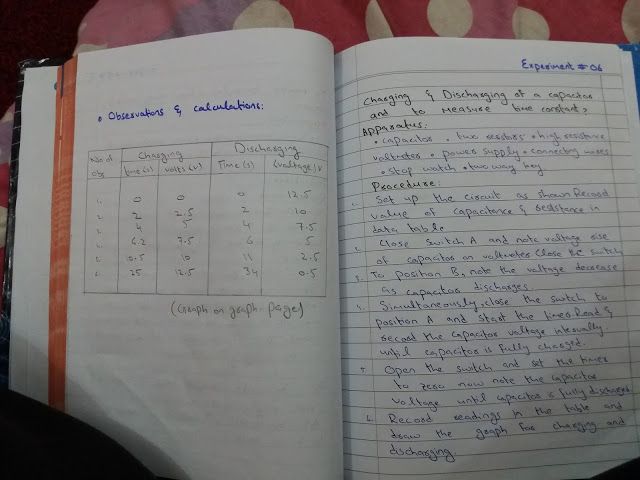 • Observations & calculations:
No. of obs | Charging | Discharging
time (s) | volts (v) | Time (s) | (voltage) v
1. | 0 | 0 | 0 | 12.5
2. | 2 | 2.5 | 2 | 10
3. | 4 | 5 | 4 | 7.5
4. | 6.2 | 7.5 | 6 | 5
5. | 0.5 | 10 | 11 | 2.5
6. | 25 | 12.5 | 34 | 0.5
(Graph on graph page)
Experiment # 06
Charging & Discharging of a capacitor
and to measure time constant,
Apparatus:
• capacitor • two resistors • high resistance
voltmeter • power supply • connecting wires
• stop watch • two way key
Procedure:
1. Set up the circuit as shown Record
value of capacitance & resistance in
data table
2. Close switch A and note voltage rise
of capacitor on voltmeter Close the switch
3. To position B, note the voltage decrease
as capacitor discharges.
4. Simultaneously, close the switch to
position A and start the timer. Read &
record the capacitor voltage intervally
until capacitor is fully charged.
5. Open the switch and set the timer
to zero now note the capacitor
voltage until capacitor is fully discharged
6. Record readings in the table and
draw the graph for charging and
discharging